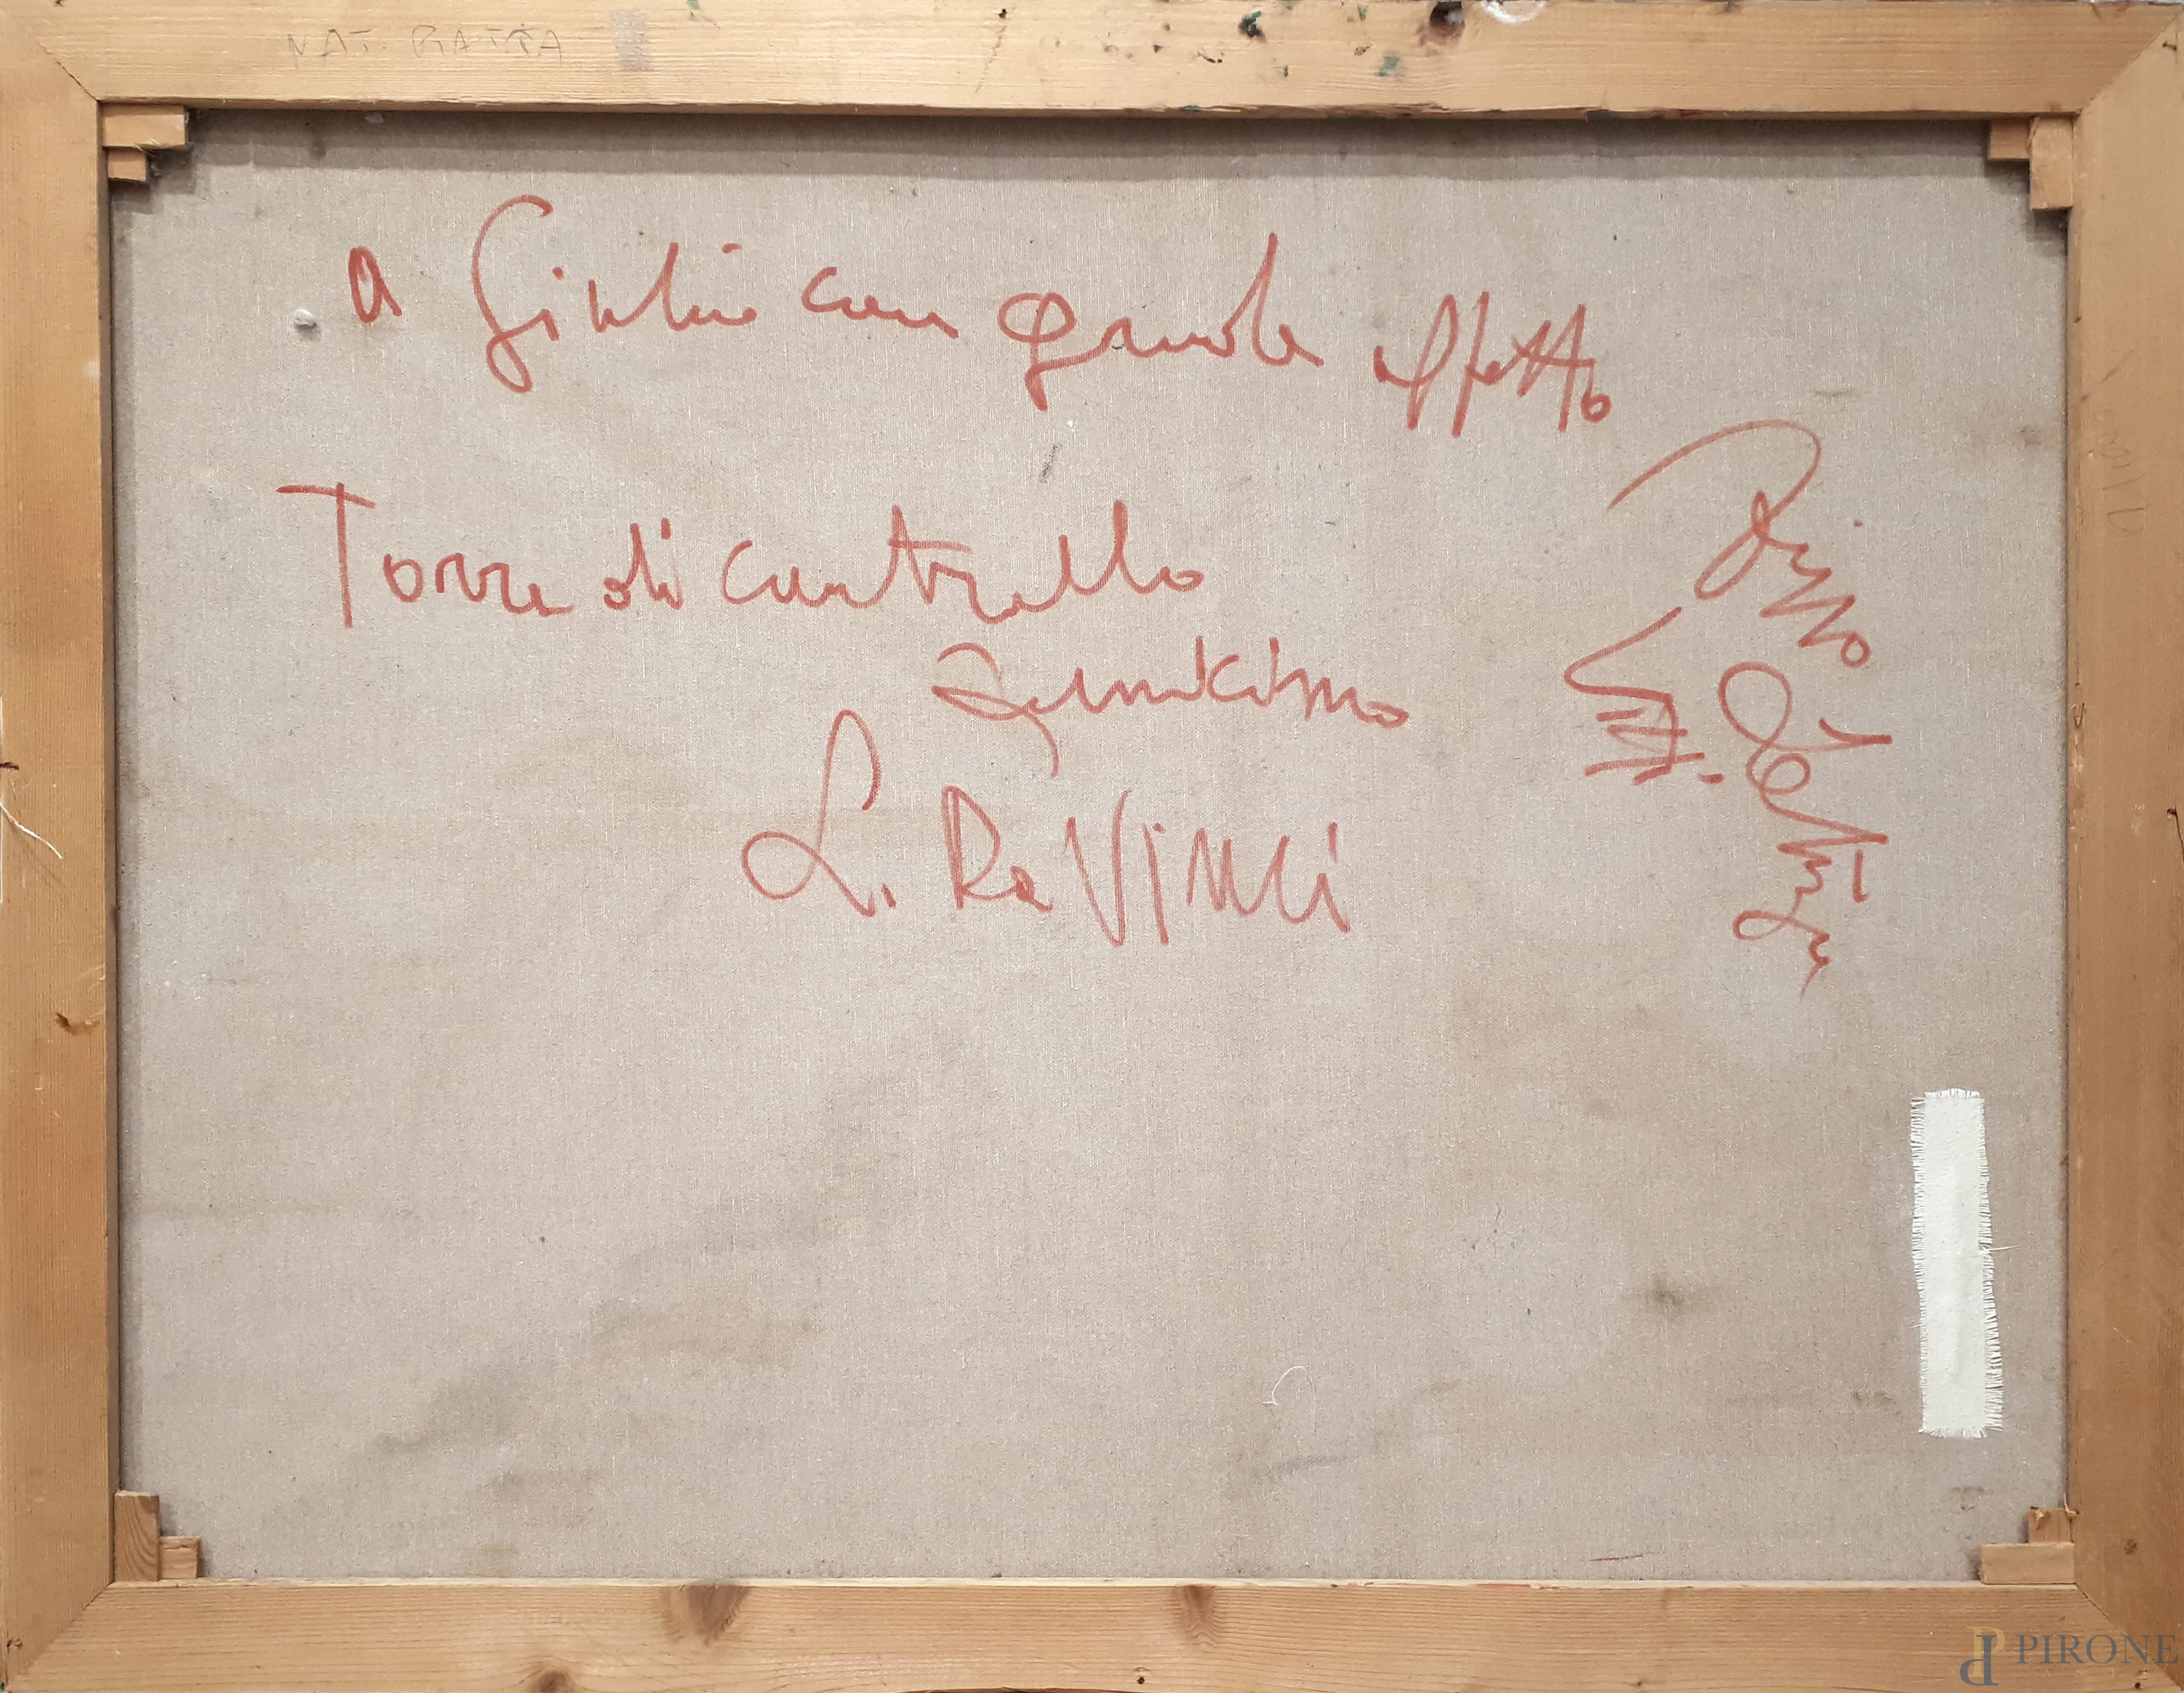 NAT. PIATTA
a Giulio con grande affetto
Torre di controllo
Fiumicino
L. Da Vinci
PIRONE